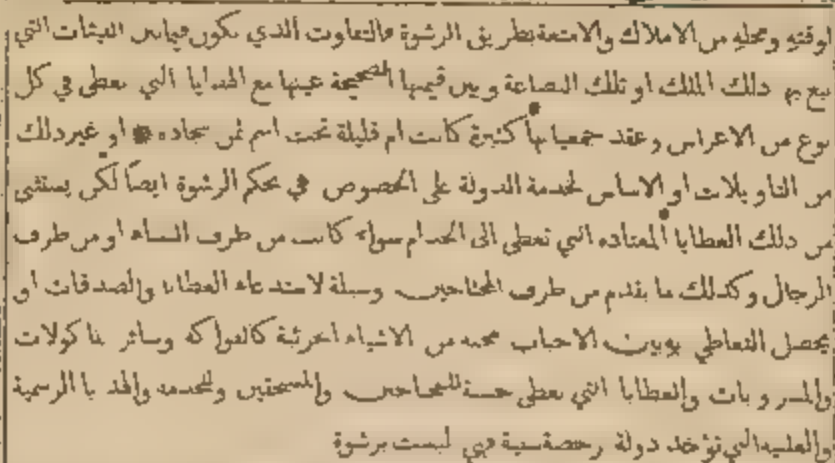 اوقته ومحله من الاملاك والامتعة بطريق الرشوة فالتفاوت الذي يكون فيما بين الفيئات التي
بيع بها ذلك الملك او تلك البضاعة وبين قيمتها الصحيحة عينها مع الهدايا التي تعطى في كل
نوع من الاعراس وعقد جمعياتها كثيرة كانت ام قليلة تحت اسم ثمن سجاده او غير ذلك
من التاويلات او الالباس لخدمة الدولة على الخصوص في حكم الرشوة ايضاً لكن يستثنى
من ذلك العطايا المعتاده التي تعطى الى الخدام سواء كانت من طرف النساء او من طرف
الرجال وكذلك ما يقدم من طرف المحتاجين وسيلة لاستدعاء العطايا والصدقات او
يحصل التعاطي به بين الاحباب محبه من الاشياء الجزئية كالفواكه وسائر ماكولات
والمشروبات والعطايا التي تعطى حسنة للمحتاجين والمستحقين وللخدمه والهدايا الرسمية
والعلنيه التي تؤخذ دولة رخصة سنية فهي ليست برشوة